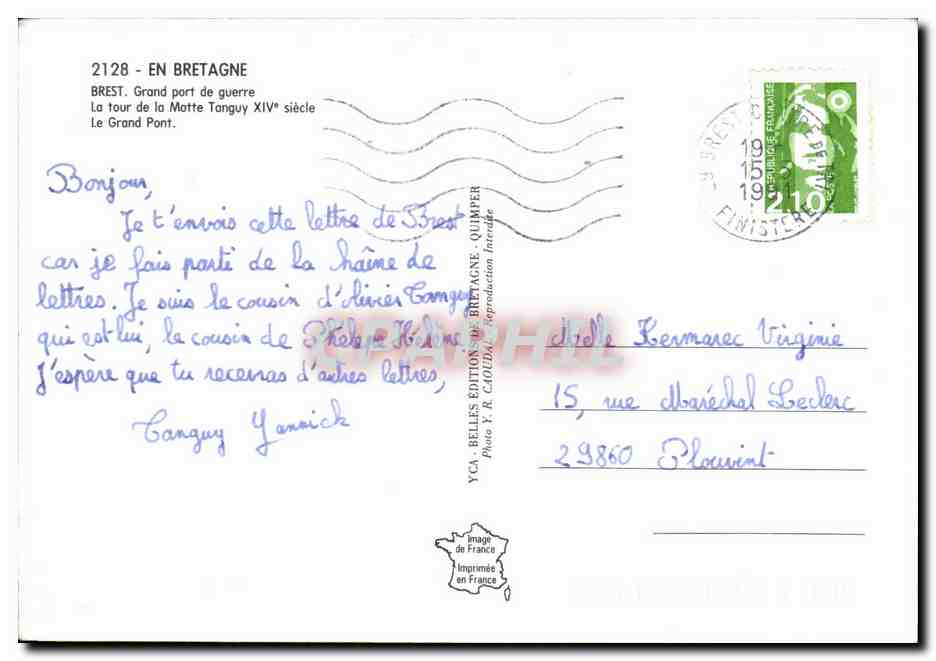 2128 - EN BRETAGNE
BREST. Grand port de guerre
La tour de la Motte Tanguy XIVe siècle
Le Grand Pont.
Bonjour,
Je t'envois cette lettre de Brest
car je fais parti de la haîne de
lettres. Je suis le cousin d'Olivier Tanguy
qui est lui, le cousin de Hélène
J'espère que tu recevras d'autres lettres,
Tanguy Yannick
YCA - BELLES EDITIONS DE BRETAGNE - QUIMPER
Photo Y. R. CAOUDAL Reproduction Interdite
CPAPHIL
BREST
FINISTERE
REPUBLIQUE FRANÇAISE
2,10
Melle Kermarec Virginie
15, rue Maréchal Leclerc
29860 Plouvint
Image
de France
Imprimée
en France